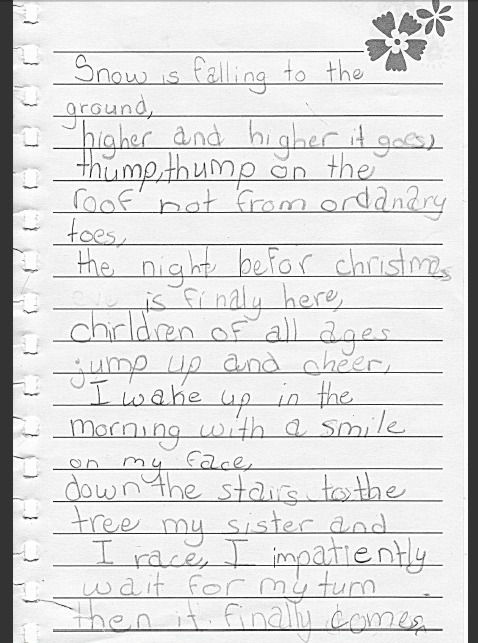 Snow is falling to the
ground,
higher and higher it goes,
thump,thump on the
roof not from ordanary
toes,
the night befor christmas
eve is finaly here,
chirldren of all ages
jump up and cheer,
I wake up in the
morning with a smile
on my face,
down the stairs to the
tree my sister and
I race, I impatiently
wait for my turn
then it finally comes,